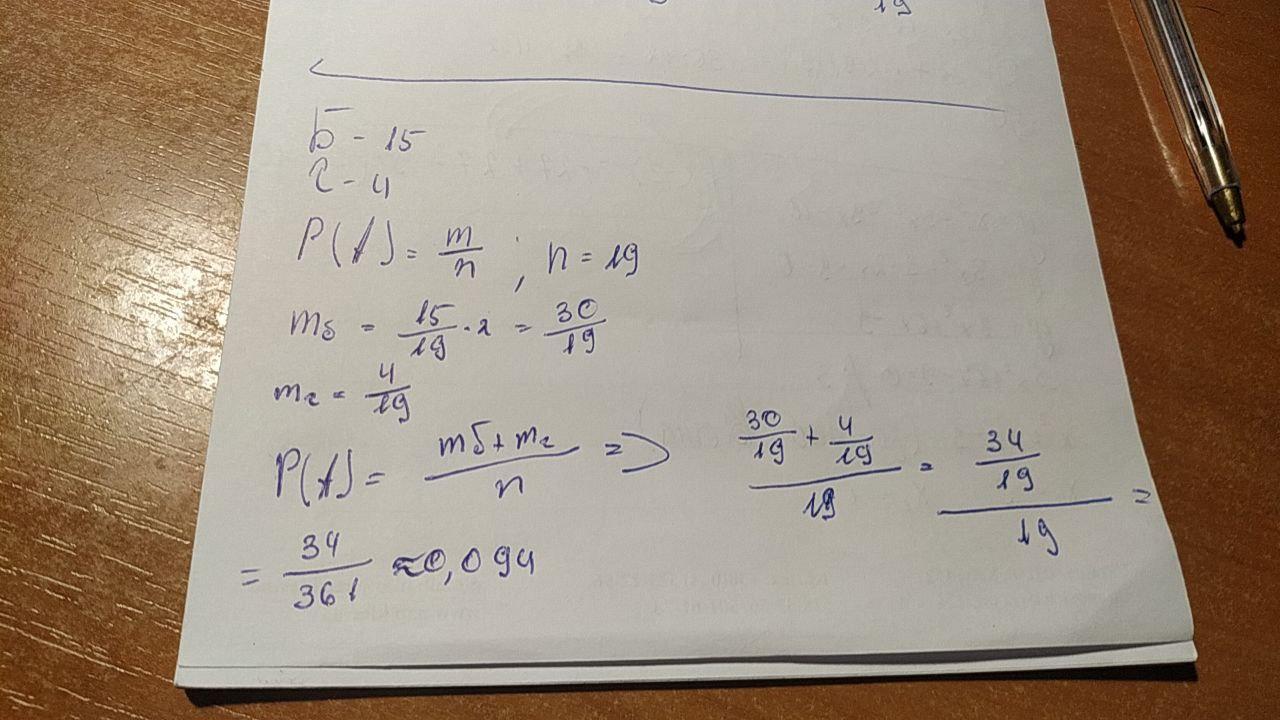 19
Б - 15
С - 4
P(A) = m/n ; n = 19
mб = 15/19 · 2 = 30/19
mс = 4/19
P(A) = (mб + mс)/n => (30/19 + 4/19)/19 = (34/19)/19 =
= 34/361 ≈ 0,094